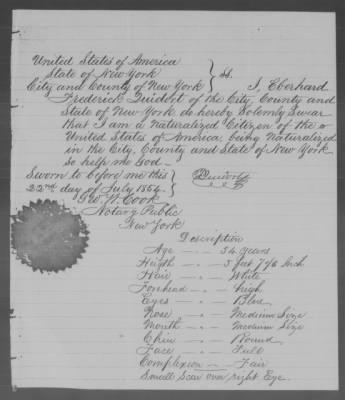 United States of America
State of New York
City and County of New York } SS. I, Eberhard
Frederick Quidort of the City, County and
State of New York, do hereby Solemnly Swear
that I am a Naturalized Citizen of the
United States of America; being Naturalized
in the City, County and State of New York
so help me God—
Sworn to before me this
22nd day of July 1854
Geo. W. Cook
Notary Public
New York
Description
Age — " — 54 years
Higth — " — 5 feet 7 4/8 Inch
Hair — " — White
Forrhead — " — high
Eyes — " — Blue
Nose — " — Medium Size
Mouth — " — Medium Size
Chin — " — Round
Face — " — Full
Complexion — " — Fair
Small Scar over right Eye.